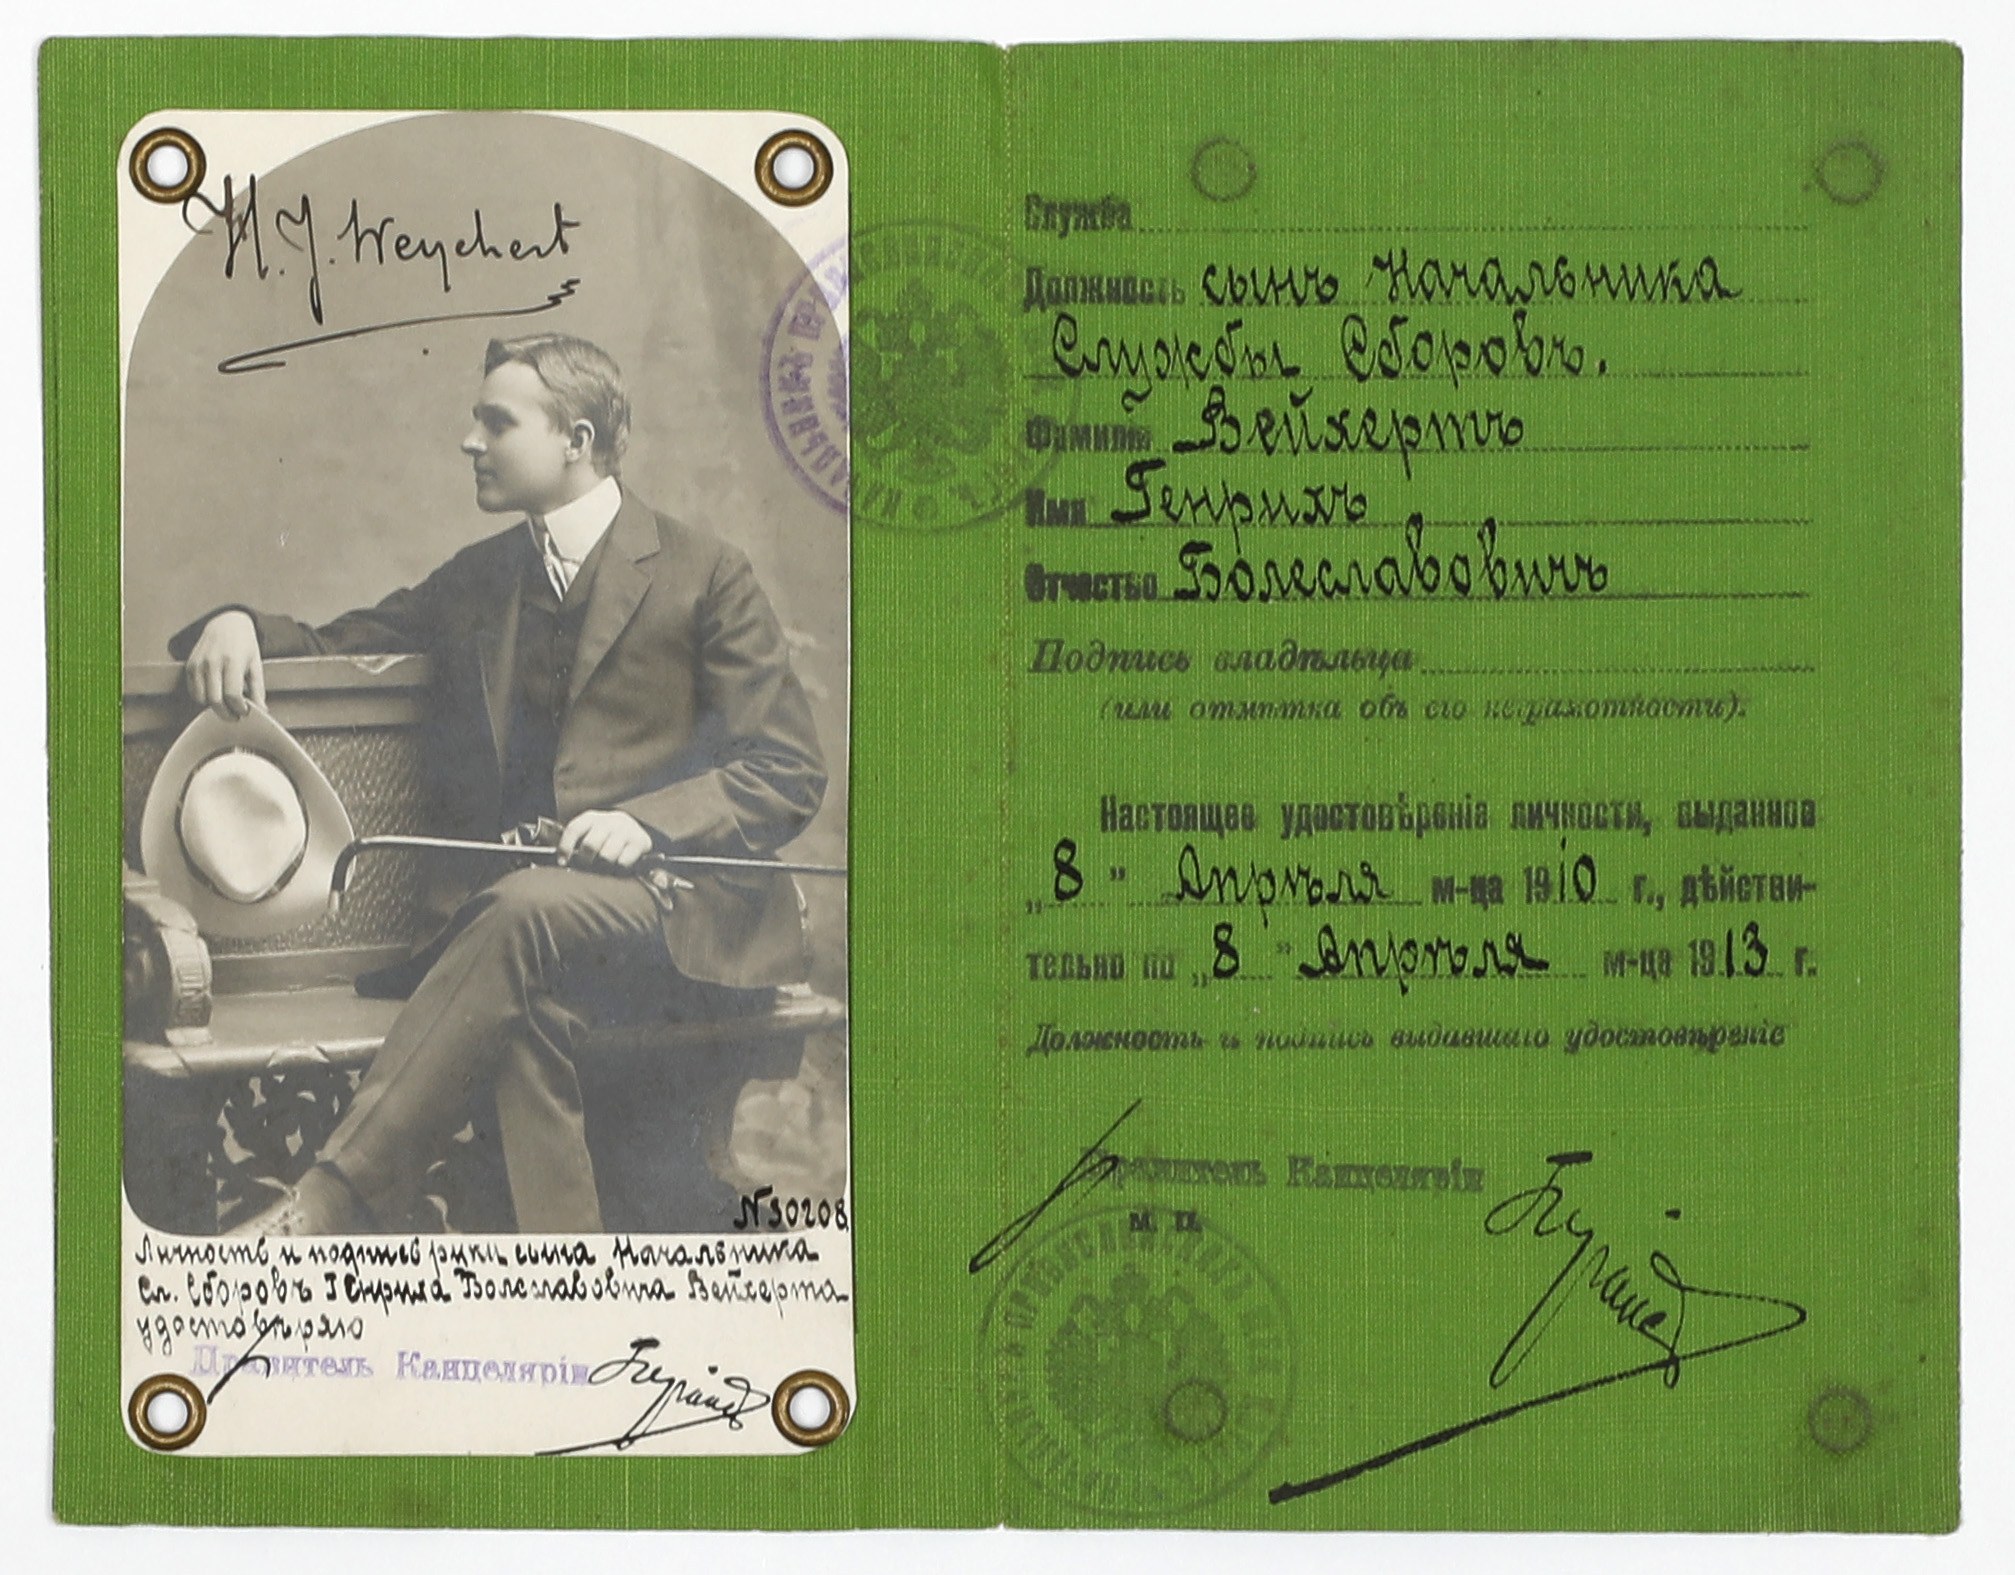 H. J. Weychert
№ 30208
Личность и подпись руки сына Начальника
Сл. Сборовъ Генриха Болеславовича Вейхерта
удостовѣряю
Правитель Канцеляріи
Служба
Должность сынъ Начальника
Службы Сборовъ.
Фамилія Вейхертъ
Имя Генрихъ
Отчество Болеславовичъ
Подпись владѣльца
(или отмѣтка объ его неграмотности).
Настоящее удостовѣреніе личности, выданное
„8" Апрѣля м-ца 1910 г., дѣйстви-
тельно по „8" Апрѣля м-ца 1913 г.
Должность и подпись выдавшаго удостовѣреніе
Правитель Канцеляріи
М. П.